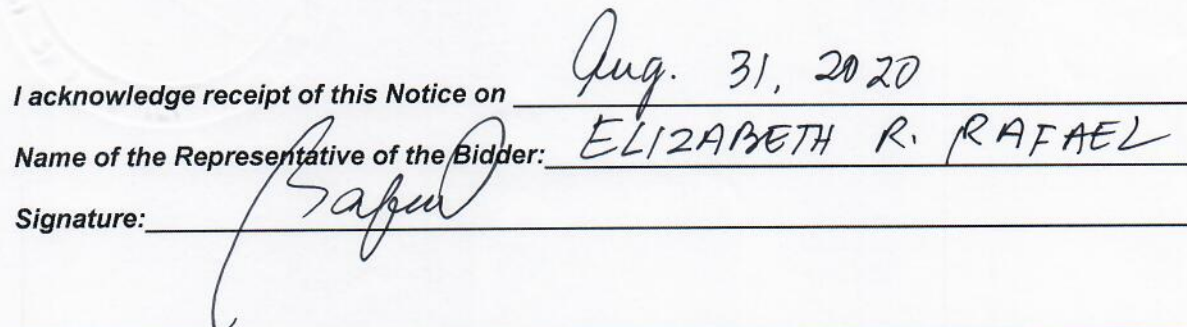 I acknowledge receipt of this Notice on Aug. 31, 2020
Name of the Representative of the Bidder: ELIZABETH R. RAFAEL
Signature: